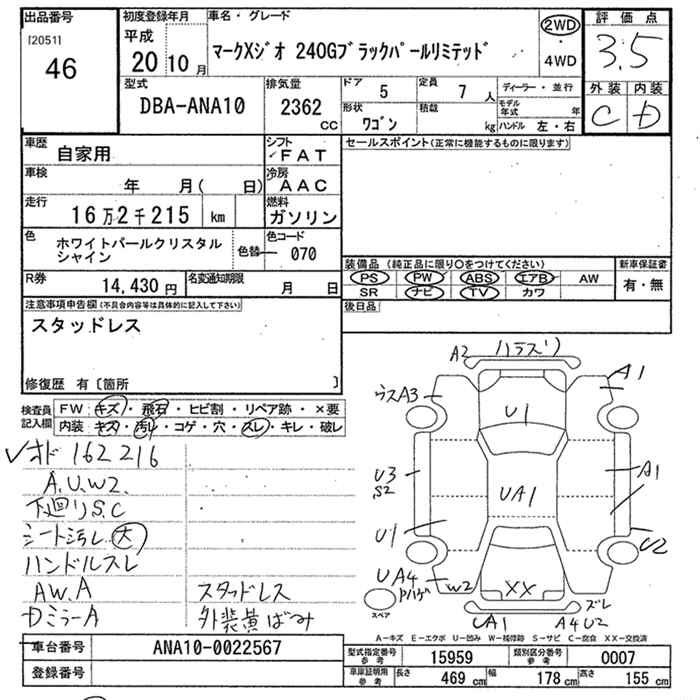 出品番号
[2051]
46
初度登録年月
平成
20 10 月
車名・グレード
マークXジオ 240Gブラックパールリミテッド
2WD
・
4WD
評価点
3.5
外装 内装
C D
型式
DBA-ANA10
排気量
2362
CC
ドア 5
定員 7 人
形状 ワゴン
積載 kg
ディーラー・並行
モデル年式 年
ハンドル 左・右
車歴
自家用
シフト
FAT
車検
年 月( 日)
冷房
AAC
走行
16万2千215 km
燃料
ガソリン
色
ホワイトパールクリスタル
シャイン
色替
色コード
070
R券
14,430 円
名変通知期限
月 日
注意事項申告欄(不具合内容等は具体的に記入して下さい)
スタッドレス
修復歴 有〔箇所 〕
セールスポイント(正常に機能するものに限ります)
装備品(純正品に限り○をつけてください)
PS PW ABS エアB AW
SR ナビ TV カワ
新車保証書
有・無
後日品
検査員
記入欄
FW キズ・飛石・ヒビ割・リペア跡・×要
内装 キズ・汚レ・コゲ・穴・スレ・キレ・破レ
✓オド 162216
A.U.W2.
下廻りS.C
シート汚レ 大
ハンドルスレ
AW.A
Dミラ-A
スタッドレス
外装黄ばみ
A2
ハラズリ
A1
ウスA3
U1
U3
S2
A1
UA1
U1
U2
UA4
Pハゲ
W2
XX
スペア
UA1
ズレ
A4 U2
A-キズ E-エクボ U-凹み W-補修跡 S-サビ C-腐食 XX-交換済
車台番号
ANA10-0022567
登録番号
型式指定番号
参考
15959
類別区分番号
参考
0007
車庫証明用
参考
長さ 469 cm
幅 178 cm
高さ 155 cm